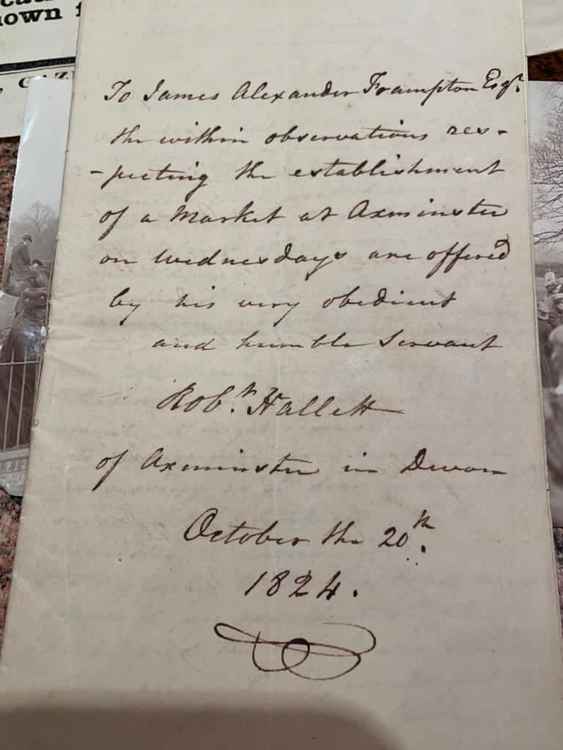 own
GAZ
To James Alexander Frampton Esqr.
the within observations res-
-pecting the establishment
of a Market at Axminster
on Wednesdays are offered
by his very obedient
and humble Servant
Robt. Hallett
of Axminster in Devon
October the 20th.
1824.